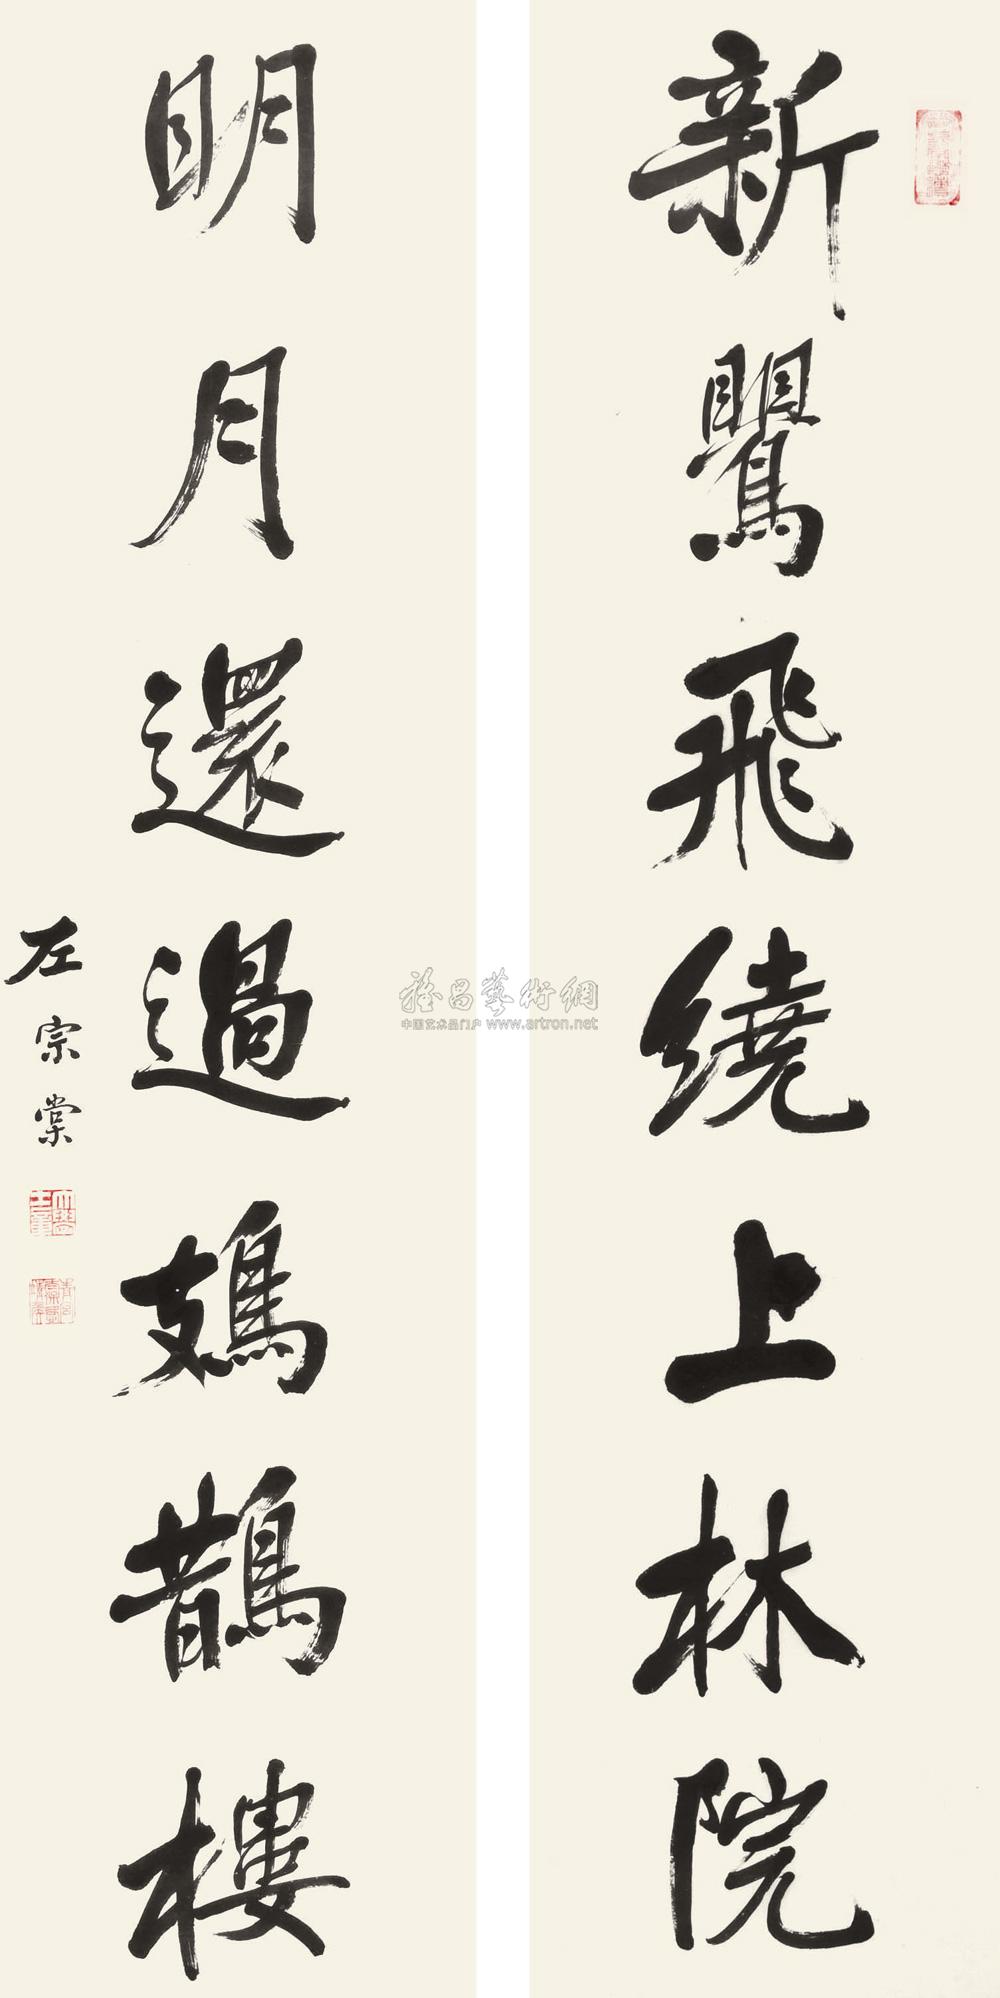 新鸎飛繞上林院
明月還過鳷鵲樓
左宗棠
雅昌藝術網
中国艺术品门户 www.artron.net